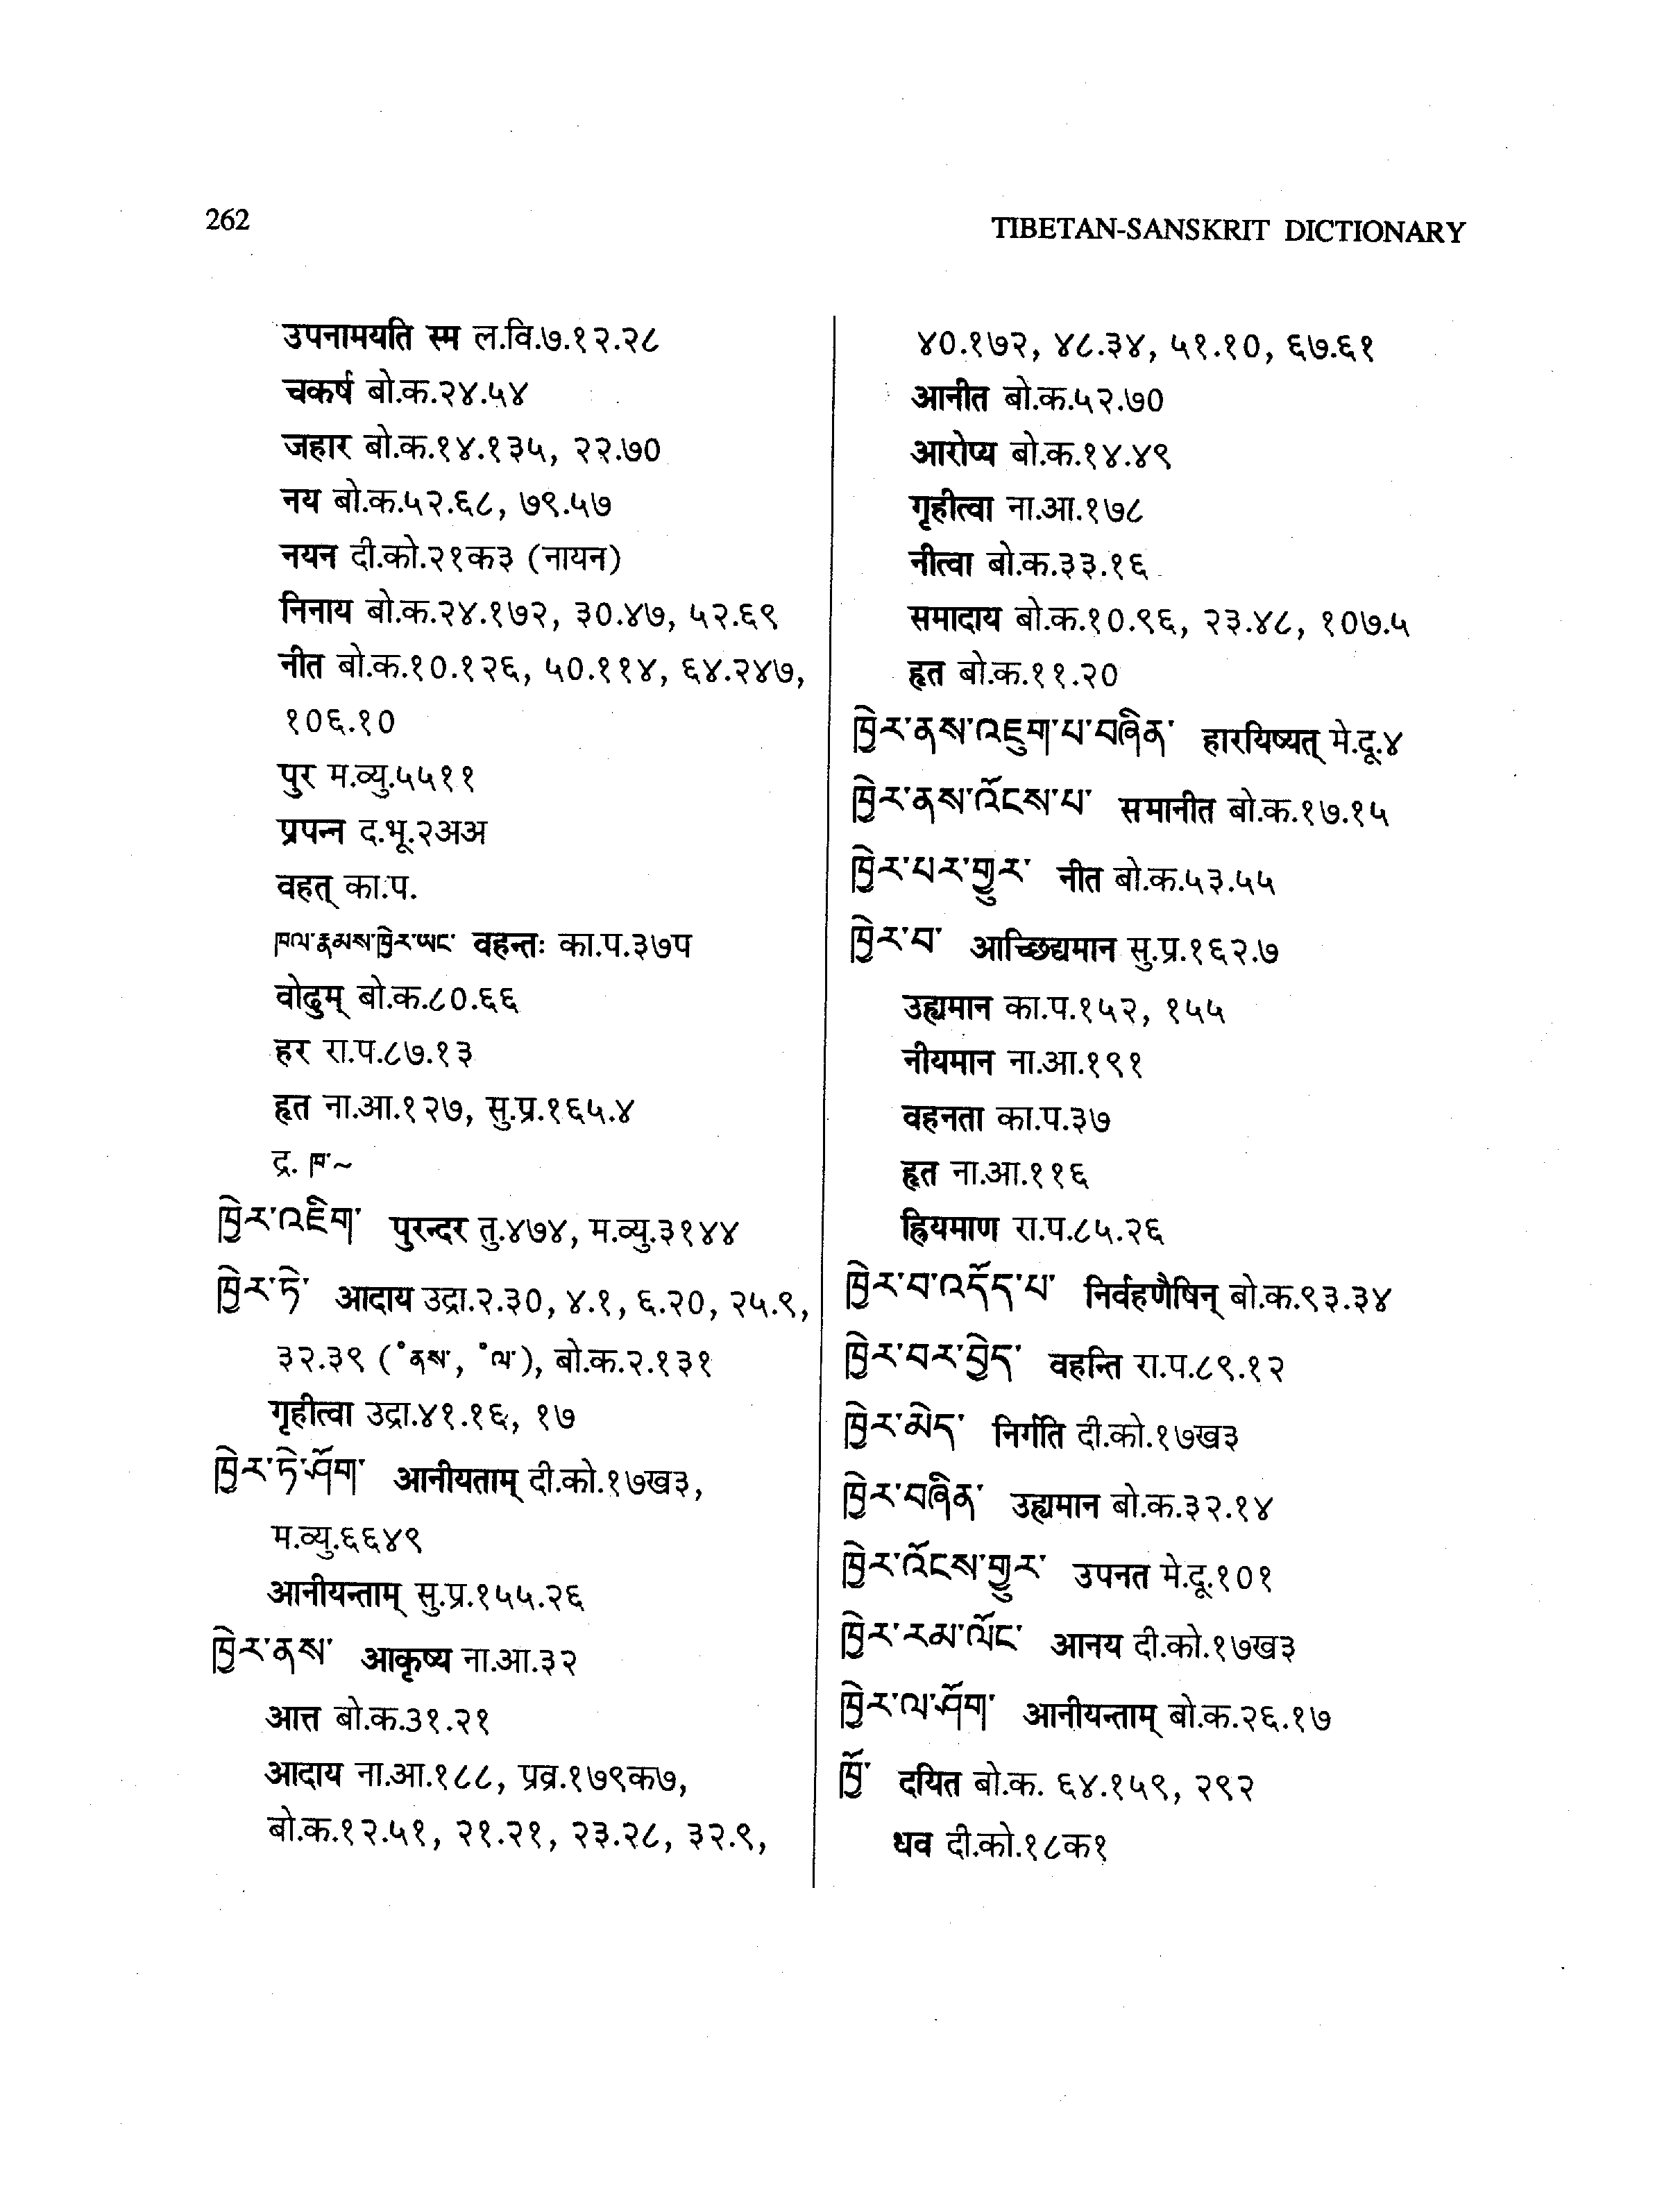 262
TIBETAN-SANSKRIT DICTIONARY
उपनामयति स्म ल.वि.७.१२.२८
चकर्ष बो.क.२४.५४
जहार बो.क.१४.१३५, २२.७०
नय बो.क.५२.६८, ७९.५७
नयन दी.को.२१क३ (नायन)
निनाय बो.क.२४.१७२, ३०.४७, ५२.६९
नीत बो.क.१०.१२६, ५०.११४, ६४.२४७,
१०६.१०
पुर म.व्यु.५५११
प्रपन्न द.भू.२अअ
वहत् का.प.
ཁལ་རྣམས་ཁྱེར་ཡང་ वहन्तः का.प.३७प
वोढुम् बो.क.८०.६६
हर रा.प.८७.१३
हृत ना.आ.१२७, सु.प्र.१६५.४
द्र. ཁ་~
ཁྱེར་འཇིག་ पुरन्दर तु.४७४, म.व्यु.३१४४
ཁྱེར་ཏེ་ आदाय उद्रा.२.३०, ४.१, ६.२०, २५.९,
३२.३९ (˚ནས་, ˚ལ་), बो.क.२.१३१
गृहीत्वा उद्रा.४१.१६, १७
ཁྱེར་ཏེ་ཤོག་ आनीयताम् दी.को.१७ख३,
म.व्यु.६६४९
आनीयन्ताम् सु.प्र.१५५.२६
ཁྱེར་ནས་ आकृष्य ना.आ.३२
आत्त बो.क.३१.२१
आदाय ना.आ.१८८, प्रव्र.१७९क७,
बो.क.१२.५१, २१.२१, २३.२८, ३२.९,
४०.१७२, ४८.३४, ५१.१०, ६७.६१
आनीत बो.क.५२.७०
आरोप्य बो.क.१४.४९
गृहीत्वा ना.आ.१७८
नीत्वा बो.क.३३.१६
समादाय बो.क.१०.९६, २३.४८, १०७.५
हृत बो.क.११.२०
ཁྱེར་ནས་འཇུག་པ་བཞིན་ हारयिष्यत् मे.दू.४
ཁྱེར་ནས་འོངས་པ་ समानीत बो.क.१७.१५
ཁྱེར་པར་གྱུར་ नीत बो.क.५३.५५
ཁྱེར་བ་ आच्छिद्यमान सु.प्र.१६२.७
उह्यमान का.प.१५२, १५५
नीयमान ना.आ.१९१
वहनता का.प.३७
हृत ना.आ.११६
ह्रियमाण रा.प.८५.२६
ཁྱེར་བ་འདོད་པ་ निर्वहणैषिन् बो.क.९३.३४
ཁྱེར་བར་བྱེད་ वहन्ति रा.प.८९.१२
ཁྱེར་མེད་ निर्गति दी.को.१७ख३
ཁྱེར་བཞིན་ उह्यमान बो.क.३२.१४
ཁྱེར་འོངས་གྱུར་ उपनत मे.दू.१०१
ཁྱེར་རམ་ལོང་ आनय दी.को.१७ख३
ཁྱེར་ལ་ཤོག་ आनीयन्ताम् बो.क.२६.१७
ཁྱོ་ दयित बो.क. ६४.१५९, २९२
धव दी.को.१८क१